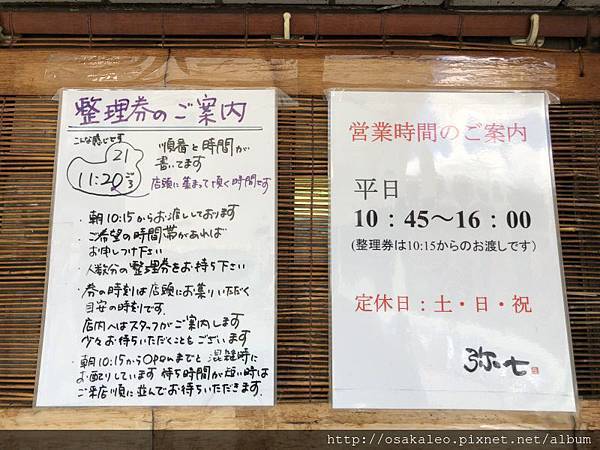 整理券のご案内
こんな感じです
21
11:20ごろ
順番と時間が
書いてます
店頭に集まって頂く時間です
・朝10:15からお渡ししております
・ご希望の時間帯があれば
お申しつけ下さい
・人数分の整理券をお持ち下さい
・券の時刻は店頭にお集りいただく
目安の時刻です.
店内へはスタッフがご案内します
少々お待ちいただくこともございます
・朝10:15からOPENまでと混雑時に
お配りしています 待ち時間が短い時は
ご来店順に並んでお待ちいただきます.
営業時間のご案内
平日
10：45～16：00
(整理券は10:15からのお渡しです)
定休日：土・日・祝
弥七
http://osakaleo.pixnet.net/album